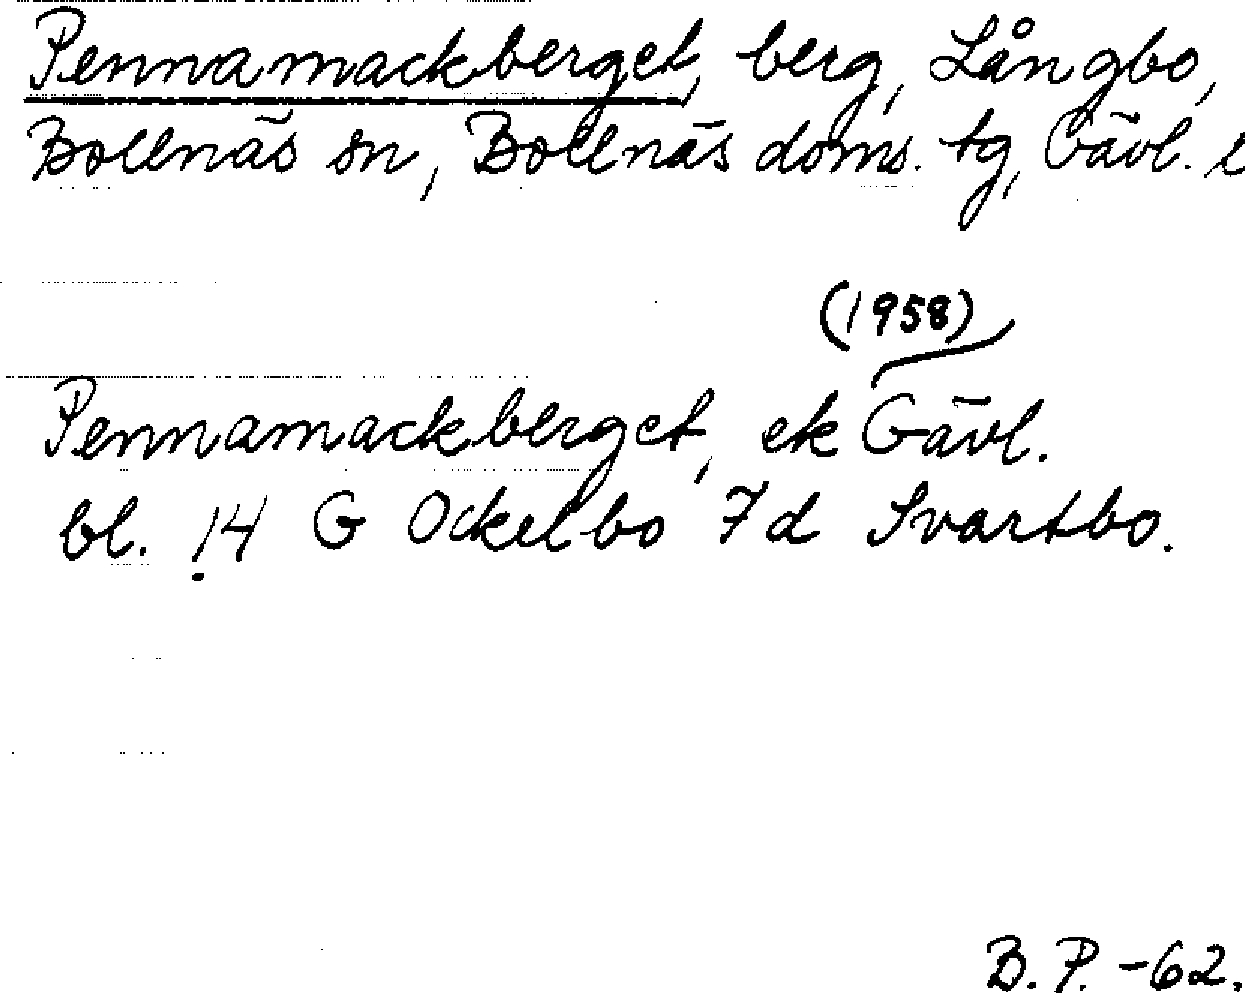 Pennamackberget, berg, Långbo,
Bollnäs sn, Bollnäs doms. tg, Gävl. l
(1958)
Pennamackberget, ek Gävl.
bl. 14 G Ockelbo 7d Svartbo.
B. P. -62.